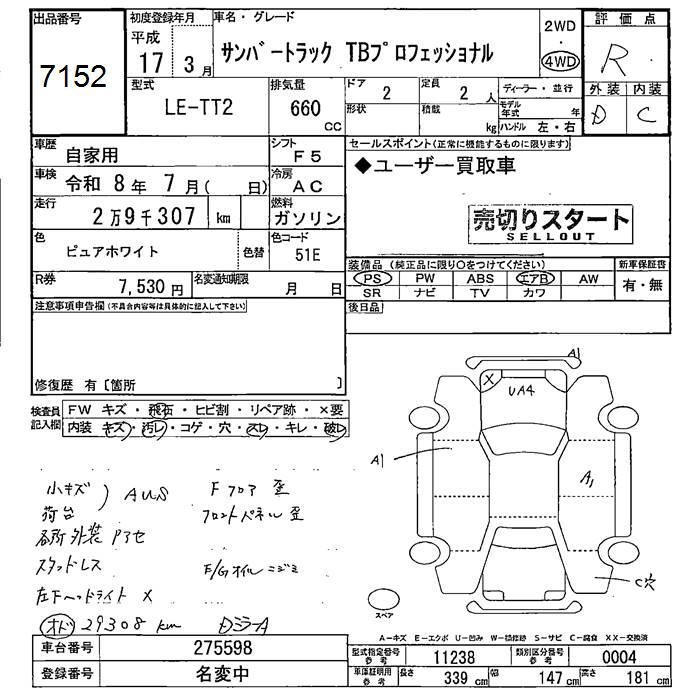 出品番号
7152
初度登録年月
平成
17 3月
車名・グレード
サンバートラック TBプロフェッショナル
2WD
・
4WD
評価点
R
外装 内装
D C
型式
LE-TT2
排気量
660
cc
ドア
2
定員
2 人
形状
積載
kg
ディーラー・並行
モデル年式 年
ハンドル 左・右
車歴
自家用
シフト
F5
車検
令和 8年 7月( 日)
冷房
AC
走行
2万9千307 km
燃料
ガソリン
色
ピュアホワイト
色替
色コード
51E
R券
7,530 円
名変通知期限
月 日
セールスポイント(正常に機能するものに限ります)
◆ユーザー買取車
売切りスタート
SELLOUT
装備品(純正品に限り○をつけてください)
新車保証書
PS PW ABS エアB AW
SR ナビ TV カワ
有・無
後日品
注意事項申告欄(不具合内容等は具体的に記入して下さい)
修復歴 有〔箇所 〕
検査員記入欄
FW キズ・飛石・ヒビ割・リペア跡・×要
内装 キズ・汚レ・コゲ・穴・スレ・キレ・破レ
A1
X
UA4
A1
A1
C穴
スペア
小キズ
荷台
AUS
各所外装Pアセ
スタッドレス
左下ヘッドライト X
Fフロア歪
フロントパネル歪
E/Gオイルニジミ
オド 29308 km
DミラーA
A-キズ E-エクボ U-凹み W-補修跡 S-サビ C-腐食 XX-交換済
車台番号
275598
登録番号
名変中
型式指定番号参考
11238
類別区分番号参考
0004
車庫証明用参考
長さ 339 cm
幅 147 cm
高さ 181 cm